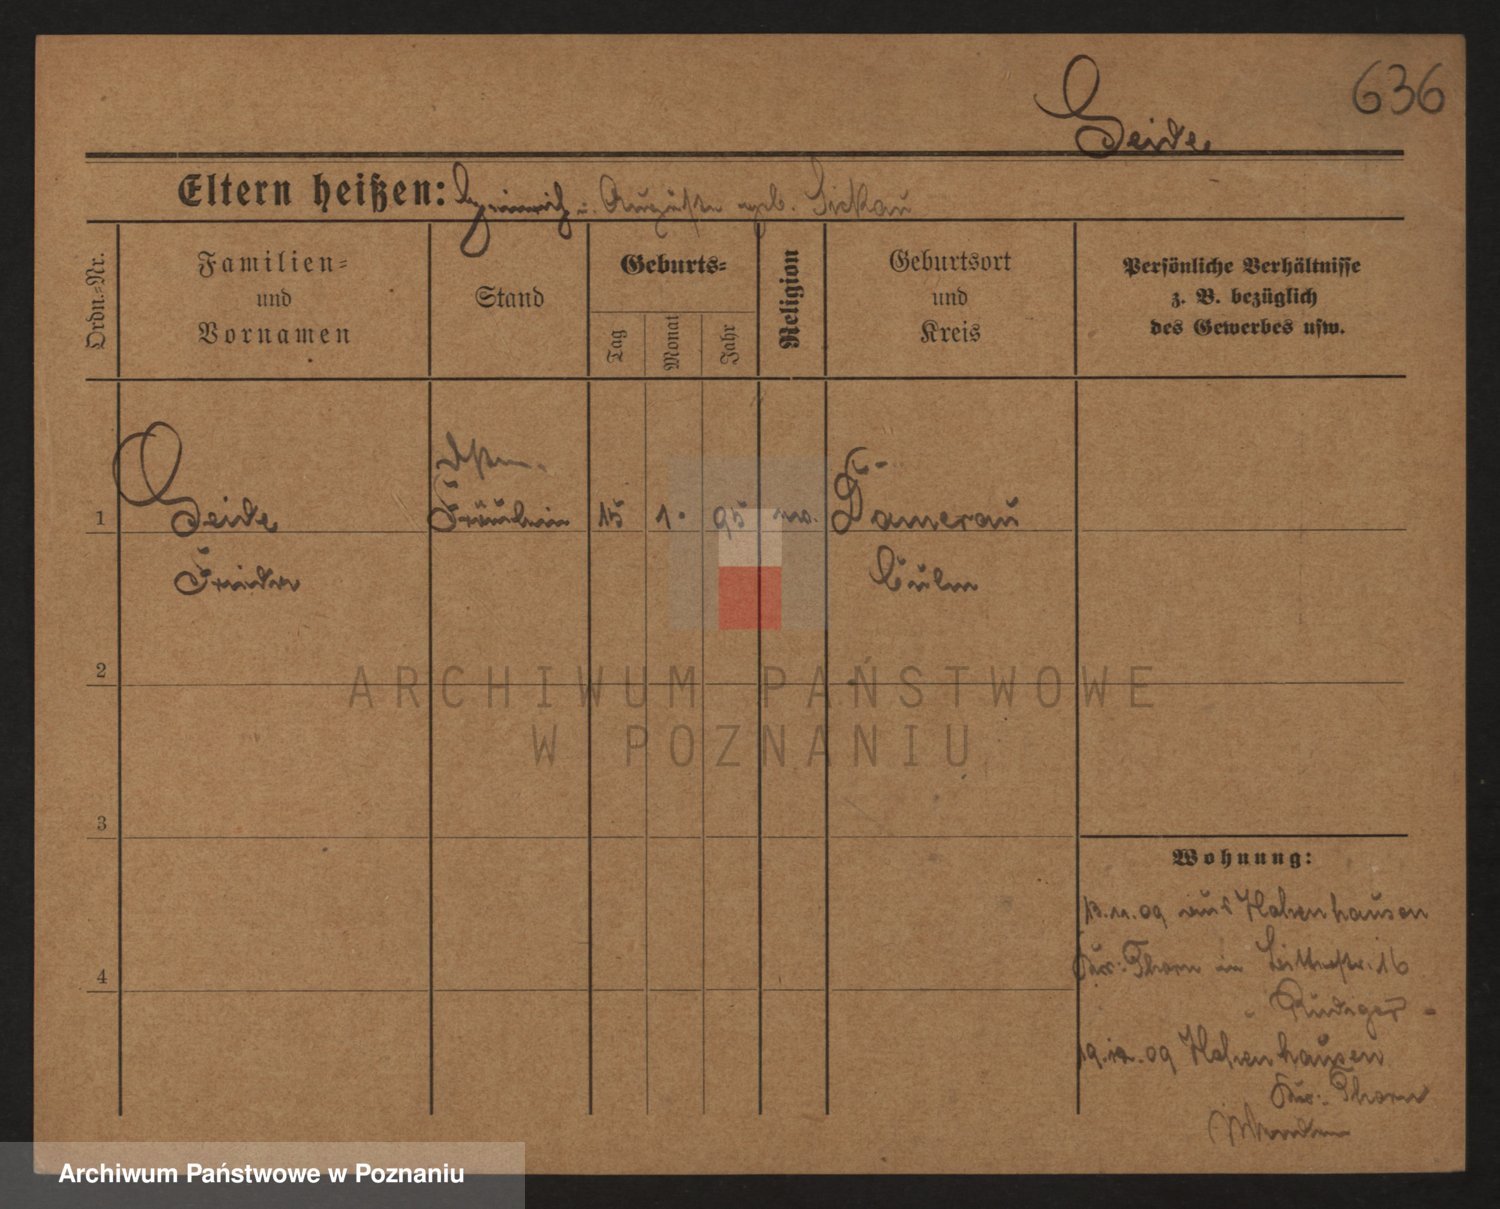 636
Seide
Eltern heißen: Heinrich u. Auguste geb. Sickau
Ordn.-Nr.
Familien-
und
Vornamen
Stand
Geburts-
Tag
Monat
Jahr
Religion
Geburtsort
und
Kreis
Persönliche Verhältnisse
z. B. bezüglich
des Gewerbes usw.
1
Seide
Frieda
Fräulein
15
1.
95
ev.
Damerau
Culm
2
3
4
ARCHIWUM PAŃSTWOWE
W POZNANIU
Wohnung:
13.11.09 aus Hohenhausen
Kr. Thorn in 16
Rüdiger
19.12.09 Hohenhausen
Kr. Thorn
Archiwum Państwowe w Poznaniu